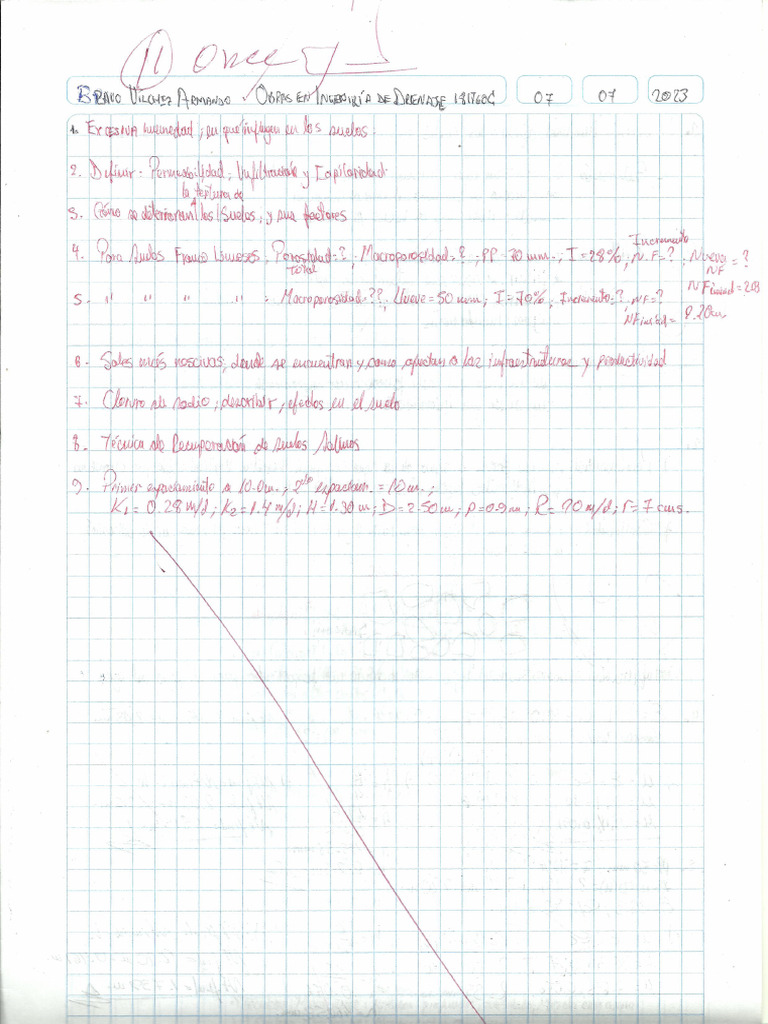 11 once
BRAVO VILCHEZ ARMANDO. OBRAS EN INGENIERÍA DE DRENAJE 181760C 07 07 2023
1. EXCESIVA humedad, en que influyen en los suelos.
2. Definir. Permeabilidad, Infiltración y Capilaridad.
la textura de
3. Cómo se determinan los suelos, y sus factores
Incremento
4. Para Suelos Franco Limosos, Porosidad=?, Macroporosidad=?, PP=70 mm., I=28%, N.F=?, Nueva NF=?
Total
NF inicial=
5. " " " " = Macroporosidad=??, llueve=50 mm, I=70%, Incremento=?, NF=?
NF inicial=
6. Sales más noscivas, donde se encuentran y como afectan a las infraestructuras y productividad
7. Cloruro de sodio, describir, efectos en el suelo
8. Técnica de Recuperación de suelos Salinos
9. Primer espaciamiento a 10.0m., 2do espaciam.=10m.;
K1=0.28 m/d; K2=1.4 m/d; H=1.30 m; D=2.50m; P=0.9m; R= 70 m/d; r=7 cms.